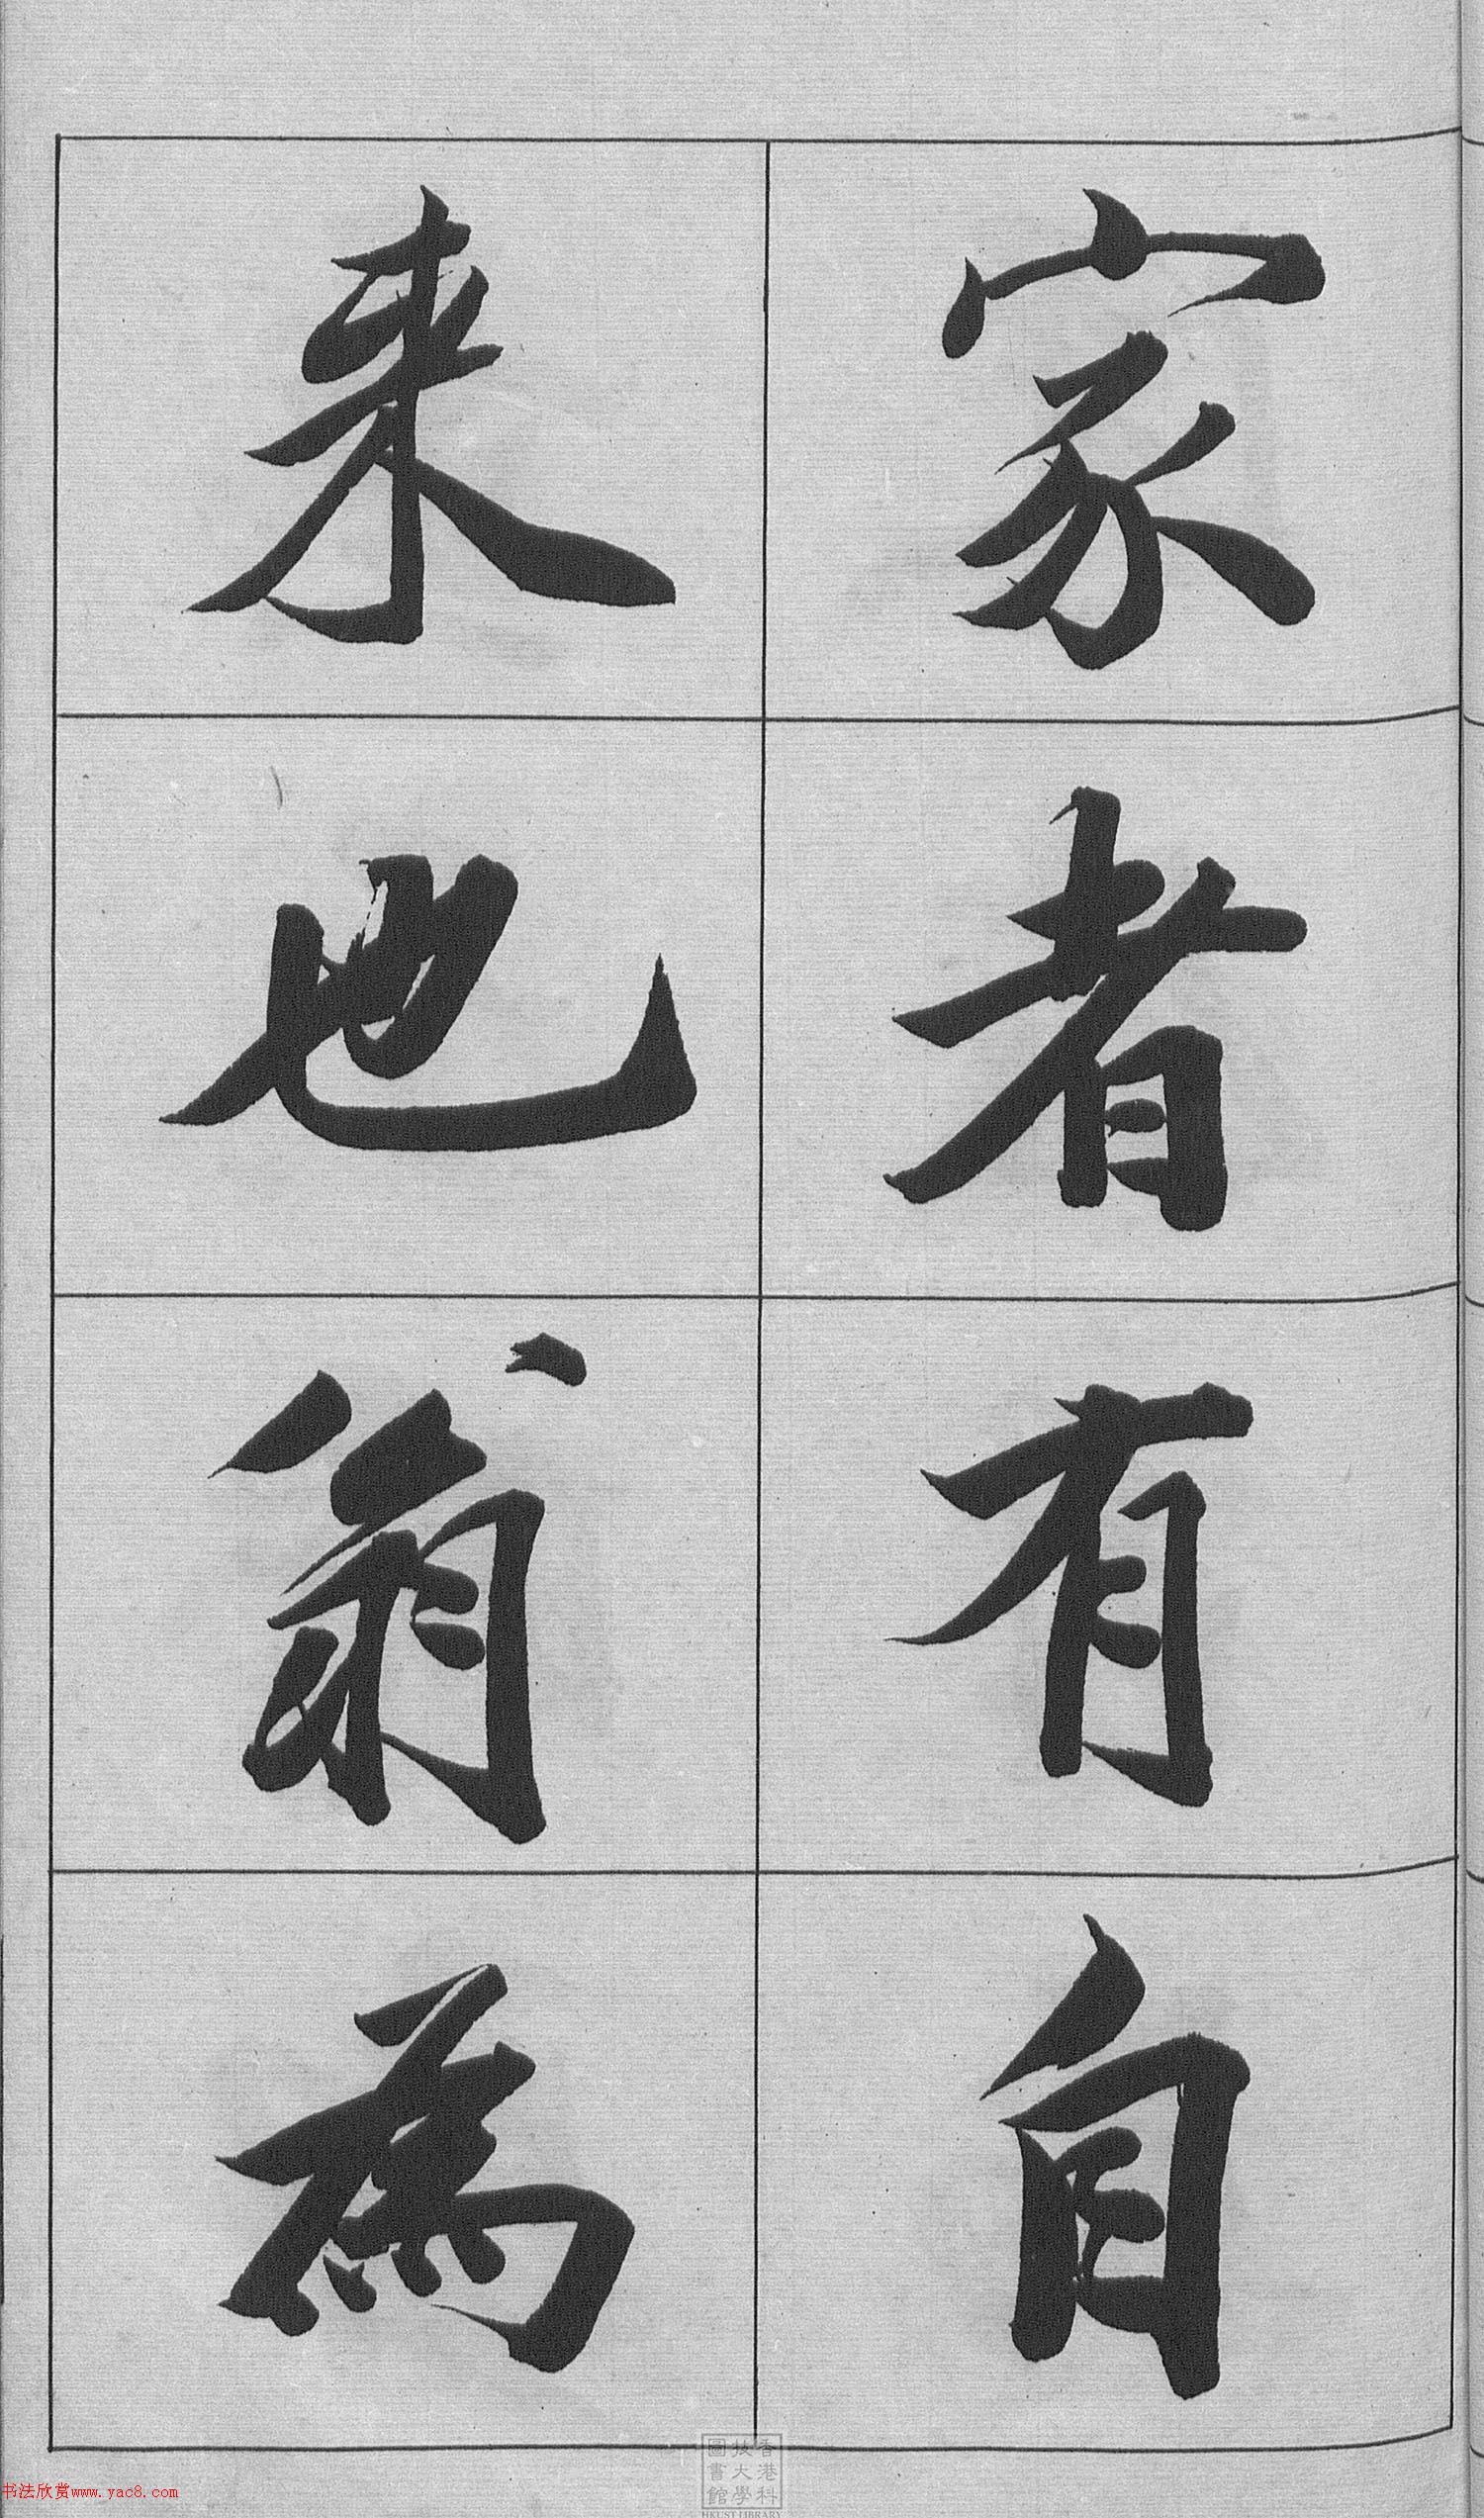 家者有自
来也翁為
香港科
技大學
圖書館
HKUST LIBRARY
书法欣赏www.yac8.com